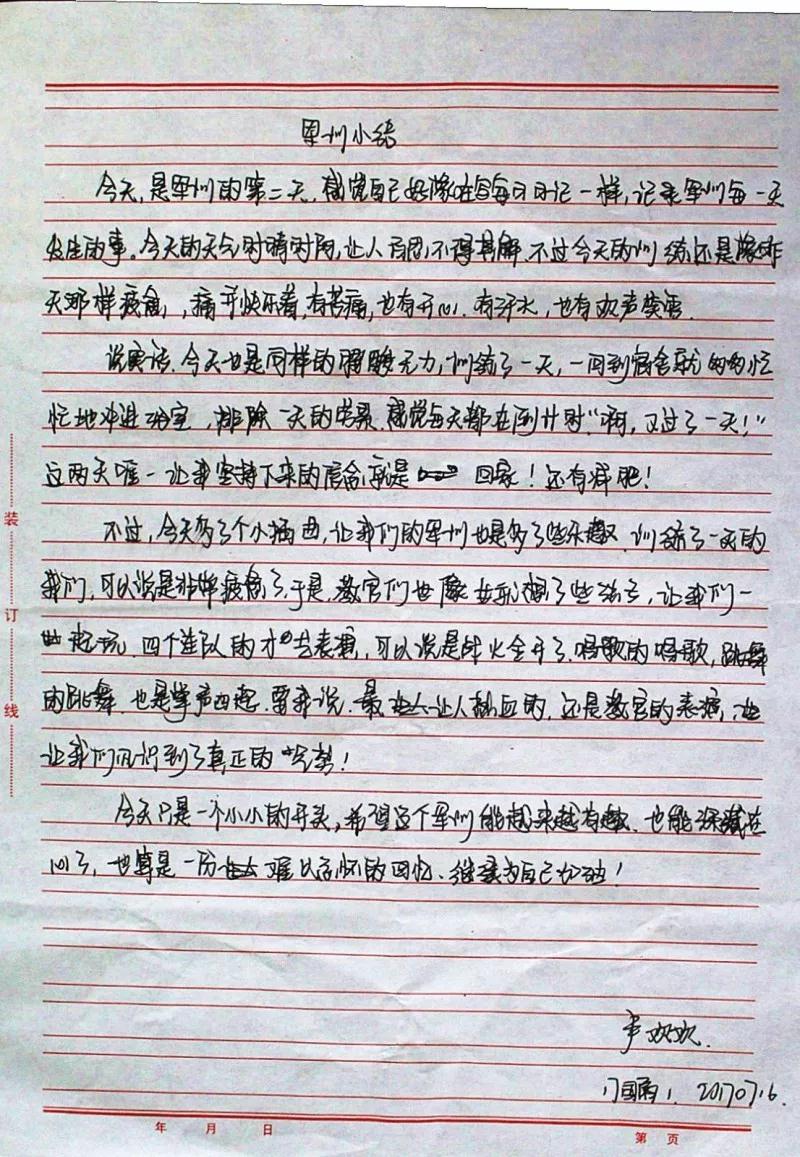 军训小结
今天,是军训的第二天,感觉自己好像在写每日日记一样,记录军训每一天
发生的事。今天的天气时晴时阴,让人百思不得其解,不过今天的训练还是像昨
天那样疲惫,痛并快乐着,有苦痛,也有开心.有汗水,也有欢声笑语.
说实话.今天也是同样的酸无力,训练了一天,一回到宿舍就匆匆忙
忙地冲进浴室,排除一天的劳累.感觉每天都在倒计时“啊,又过了一天!”
这两天唯一让我坚持下来的信念,就是回家!还有减肥!
不过,今天多了个小插曲,让我们的军训也是多了些乐趣.训练了一天的
我们,可以说是非常疲惫了.于是,教官们也想了些法子,让我们一
起玩.四个连队的才艺表演,可以说是战火全开了.唱歌的唱歌,跳舞
的跳舞.也是掌声四起.要我说.最让人的.还是教官的表演,也
让我们见识到了真正的“兄弟!
今天只是一个小小的开头,希望这个军训能越来越有趣.也能深藏在
心了,也算是一份难以忘怀的回忆.继续为自己加油!
欢欢.
20170716.
装
订
线
年 月 日
第 页